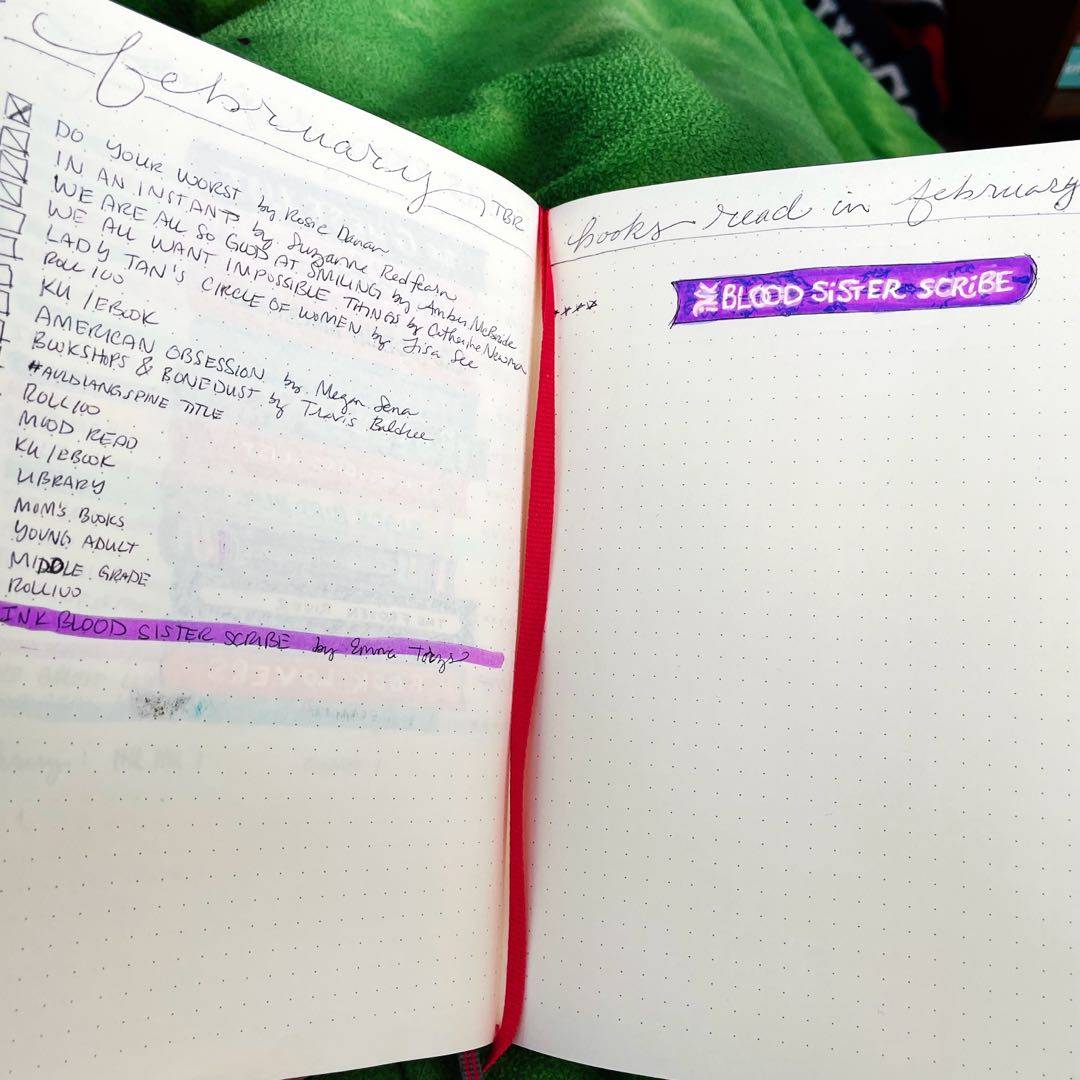 february TBR
DO YOUR WORST by Rosie Danan
IN AN INSTANT by Suzanne Redfearn
WE ARE ALL SO GOOD AT SMILING by Amber McBride
WE ALL WANT IMPOSSIBLE THINGS by Catherine Newman
LADY TAN'S CIRCLE OF WOMEN by Lisa See
ROLL 100
KU/EBOOK
AMERICAN OBSESSION by Megan
BOOKSHOPS & BONEDUST by Travis Baldree
#AULDLANGSPINE TITLE
ROLL100
MOOD READ
KU/EBOOK
LIBRARY
MOM'S BOOKS
YOUNG ADULT
MIDDLE GRADE
ROLL100
INK BLOOD SISTER SCRIBE by Emma Törzs
books read in february
INK BLOOD SISTER SCRIBE